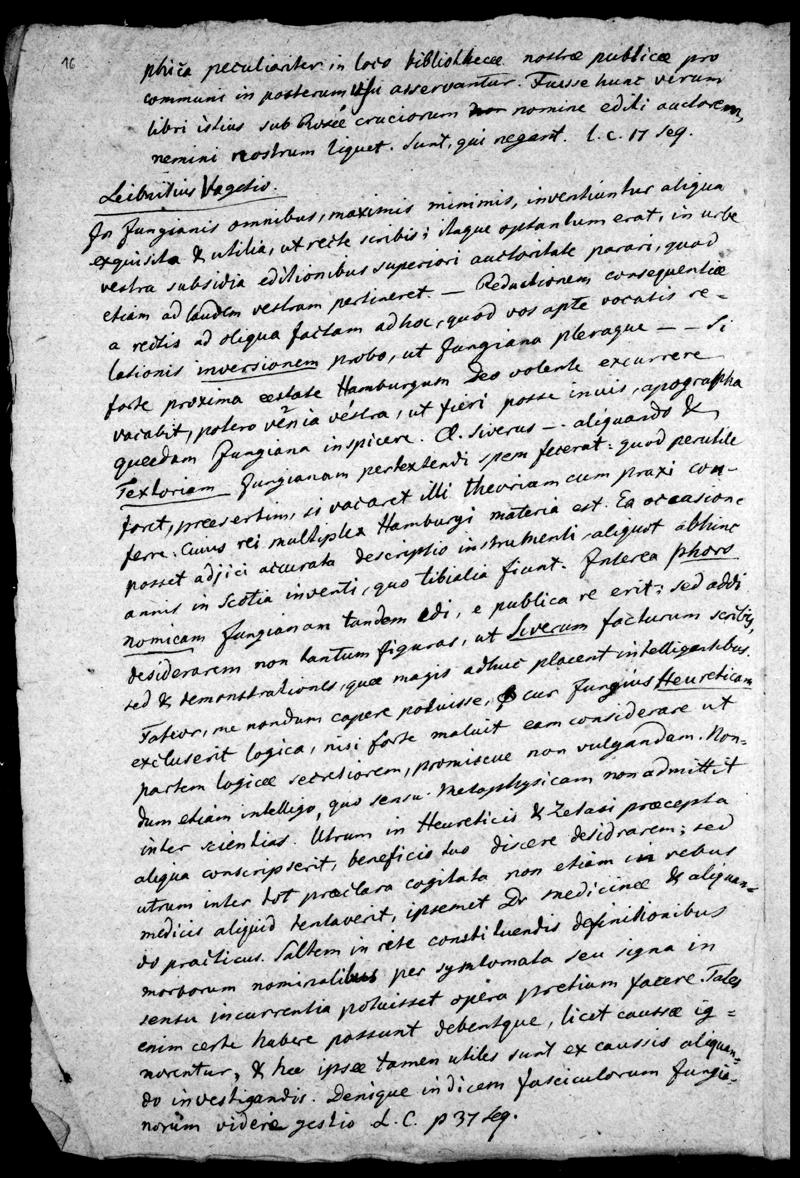 16
phica peculiariter in loco bibliothecæ nostræ publicæ pro
communi in posterum usu asservantur. Fuisse hunc virum
libri istius sub Roseæ cruciorum nomine editi auctorem,
nemini nostrum liquet. Sunt, qui negant. l.c. 17 seq.
Leibnitius Vagetio.
In Jungianis omnibus, maximis minimis, inveniuntur aliqua
exquisita & utilia, ut recte scribis; itaque optandum erat, in urbe
vestra subsidia editionibus superiori auctoritate parari, quod
etiam ad laudem vestram pertineret. — Reductionem consequentiæ
a rectis ad oliqua factam ad hoc, quod vos apte vocatis re-
lationis inversionem probo, ut Jungiana pleraque — — Si
forte proxima æstate Hamburgum Deo volente excurrere
vacabit, potero venia vestra, ut fieri posse innuis, apographa
quædam Jungiana inspicere. Cl. Siverus — aliquando &
Textoriam Jungianam pertexendi spem fecerat: quod perutile
foret, præsertim, si vacaret illi theoriam cum praxi con-
ferre. Cuius rei multiplex Hamburgi materia est. Ea occasione
posset adjici accurata descriptio instrumenti aliquot abhinc
annis in Scotia inventi, quo tibialia fiunt. Interea phoro
nomicam Jungianam tandem edi, e publica re erit; sed addi
desiderarem non tantum figuras, ut Siverum facturum scribis,
sed & demonstrationes, quæ magis adhuc placent intelligentibus.
Fateor, me nondum capere potuisse, cur Jungius Heureticam
excluserit logica, nisi forte maluit eam considerare ut
partem logicæ secretiorem, promiscue non vulgandam. Non-
dum etiam intelligo, quo sensu Metaphysicam non admittit
inter scientias. Utrum in Heureticis & Zetasi præcepta
aliqua conscripserit, beneficio tuo discere desidrarem; sed
utrum inter tot præclara cogitata non etiam in rebus
medicis aliquid tentaverit, ipsemet Dr medicinæ & aliquan-
do practicus. Saltem in rite constituendis definitionibus
morborum nominalibus per symtomata seu signa in
sensu incurrentia potuisset opera pretium facere. Tales
enim certe habere possunt debentque, licet caussæ ig-
norentur, & hæ ipsæ tamen utiles sunt ex caussis aliquan-
do investigandis. Denique indicem fasciculorum Jungia-
norum videre gestio L.C. p 37 seq.